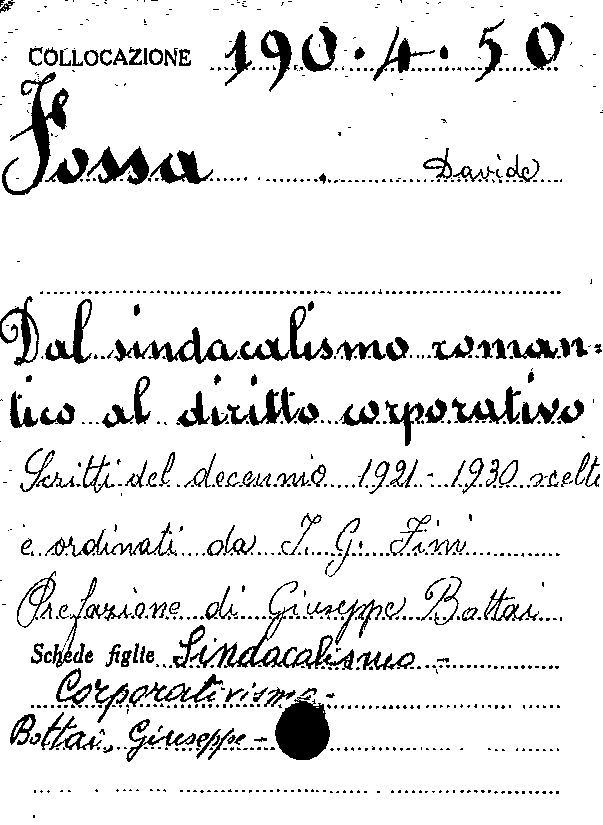 COLLOCAZIONE 190.4.50
Fossa Davide
Dal sindacalismo roman=
tico al diritto corporativo
Scritti del decennio 1921-1930 scelti
e ordinati da T. G. Fini
Prefazione di Giuseppe Bottai
Schede figlie Sindacalismo -
Corporativismo -
Bottai, Giuseppe -